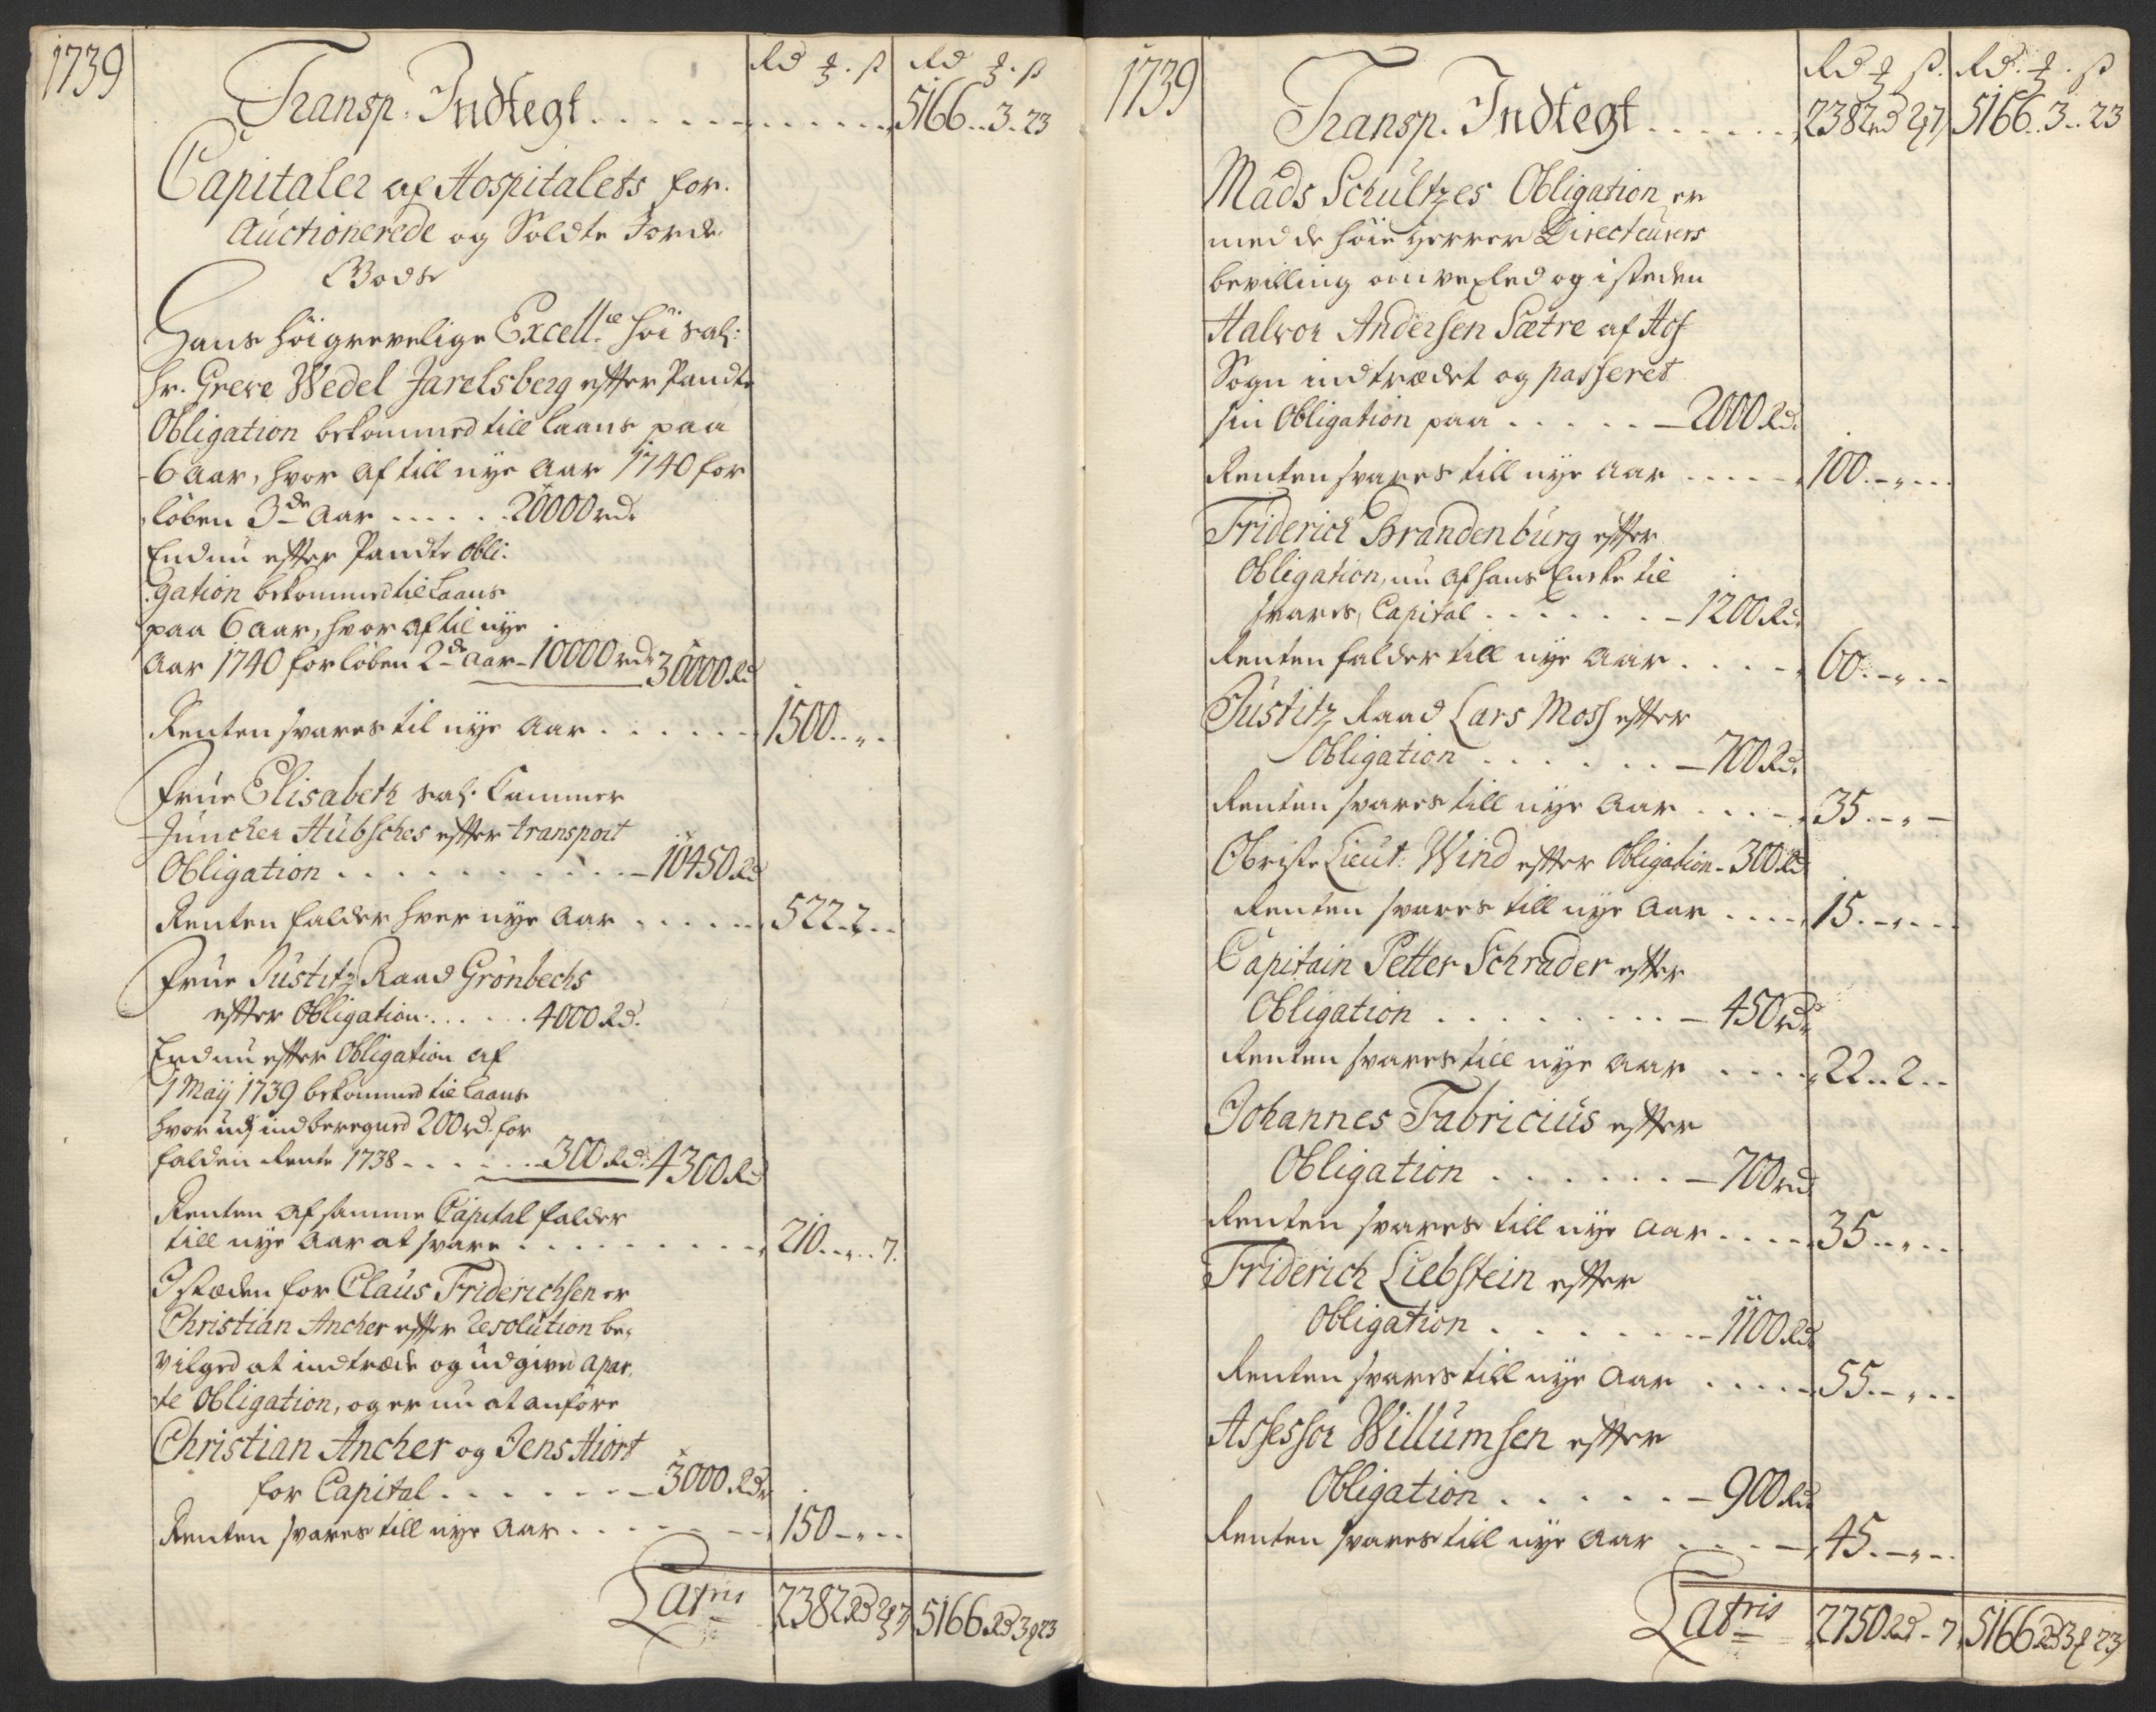 1739
Rd ₰. ß Rd ₰. ß
Transp. Indtegt . . . . . . 5166..3..23
Capitaler af Hospitalets for-
Auctionerede og Soldte Jorde
Godse
Hans höigrevelige Excell.ce höi Sal:
Hr. Greve Wedel Jarelsberg effter Pandte
Obligation bekommed till Laans paa
6 Aar, hvor af till nye Aar 1740 for
löben 3de Aar . . . . . 20000 rdr
Endnu effter Pandte Obli-
gation bekommed til Laans
paa 6 Aar, hvor af til nye
Aar 1740 forlöben 2de Aar - 10000 rdr 30000 Rd
Renten svares til nye Aar . . . . . . 1500..„.
Frue Elisabeth Sal: Cammer
Juncher Hübsches effter transport
Obligation . . . . . . . . . . 10450 Rd
Renten falder hver nye Aar . . . . . . 522..2..
Frue Justitz Raad Grönbechs
effter Obligation . . . . . 4000 Rd.
Endnu effter Obligation af
1 Maij 1739 bekommed til Laans
hvor udj indberegned 200 rd. for
falden Rente 1738 . . . . . . 300 Rd. 4300 Rd
Renten af samme Capital falder
till nye Aar at svare . . . . . . . . . 210..„..7.
I stæden for Claus Friderichsen er
Christian Ancher effter Resolution be-
vilged at indtræde og udgive apar-
te Obligation, og er nu at anföre
Christian Ancher og Jens Hiort
for Capital . . . . . . . 3000 Rdr
Renten svares till nye Aar . . . . . . . 150..„..
Latris 2382 Rd 2₰ 7 5166 Rd 3₰ 23
1739
Rd ₰ ß. Rd. ₰. ß
Transp. Indtegt . . . . . . 2382 rd 2₰ 7 5166..3..23
Mads Schultzes Obligation er
med de höie Herrer Directeurers
bevilling omvexled og i steden
Halvor Andersen Sætre af Hof
Sogn indtrædet og passeret
sin Obligation paa . . . . . 2000 Rd.
Renten svares till nye Aar . . . . . 100.-„...
Friderich Brandenburg effter
Obligation, nu af hans Encke til
svares, Capital . . . . . . . 1200 Rd.
Renten falder till nye Aar . . . . . 60.-„..
Justitz Raad Lars Moss effter
Obligation . . . . . . . 700 Rd.
Renten svares till nye Aar . . . . . 35..„-
Obriste Lieut: Wind effter Obligation - 300 Rd
Renten svares till nye Aar . . . . . 15.-„...
Capitain Petter Schrader effter
Obligation . . . . . . . . . 450 rdr
Renten svares till nye Aar . . . . . 22..2..
Johannes Fabricius effter
Obligation . . . . . . . 700 rd
Renten svares till nye Aar . . . . . 35..„..
Friderich Liebstein effter
Obligation . . . . . . . 1100 Rd.
Renten svares till nye Aar . . . . . 55.-„..
Assessor Willumsen effter
Obligation . . . . . . 900 Rd
Renten svares till nye Aar . . . . . 45.-„..
Latris 2750 Rd - 7 5166 Rd 3₰ 23